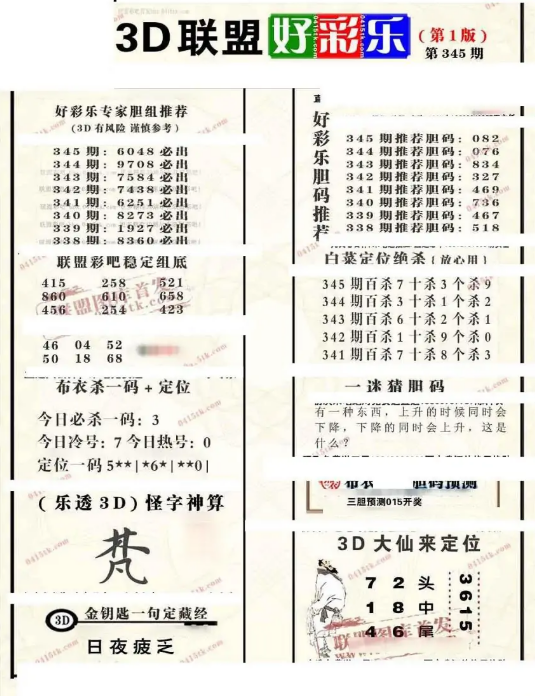 3D联盟好彩乐
(第1版)
第345期
好彩乐专家胆组推荐
(3D有风险 谨慎参考)
345期: 6048必出
344期: 9708必出
343期: 7584必出
342期: 7438必出
341期: 6251必出
340期: 8273必出
339期: 1927必出
338期: 8360必出
联盟彩吧稳定组底
415 258 521
860 610 658
456 254 423
46 04 52
50 18 68
布衣杀一码+定位
今日必杀一码: 3
今日冷号: 7 今日热号: 0
定位一码5**|*6*|**0|
(乐透3D)怪字神算
梵
3D 金钥匙一句定藏经
日夜疲乏
好彩乐胆码推荐
345期推荐胆码: 082
344期推荐胆码: 076
343期推荐胆码: 834
342期推荐胆码: 327
341期推荐胆码: 469
340期推荐胆码: 736
339期推荐胆码: 467
338期推荐胆码: 518
白菜定位绝杀(放心用)
345期百杀7十杀3个杀9
344期百杀3十杀1个杀2
343期百杀6十杀2个杀1
342期百杀1十杀9个杀0
341期百杀7十杀8个杀3
一迷猜胆码
有一种东西，上升的时候同时会
下降，下降的同时会上升，这是
什么？
布衣 胆码预测
三胆预测015开奖
3D大仙来定位
7 2 头
1 8 中
4 6 尾
3615